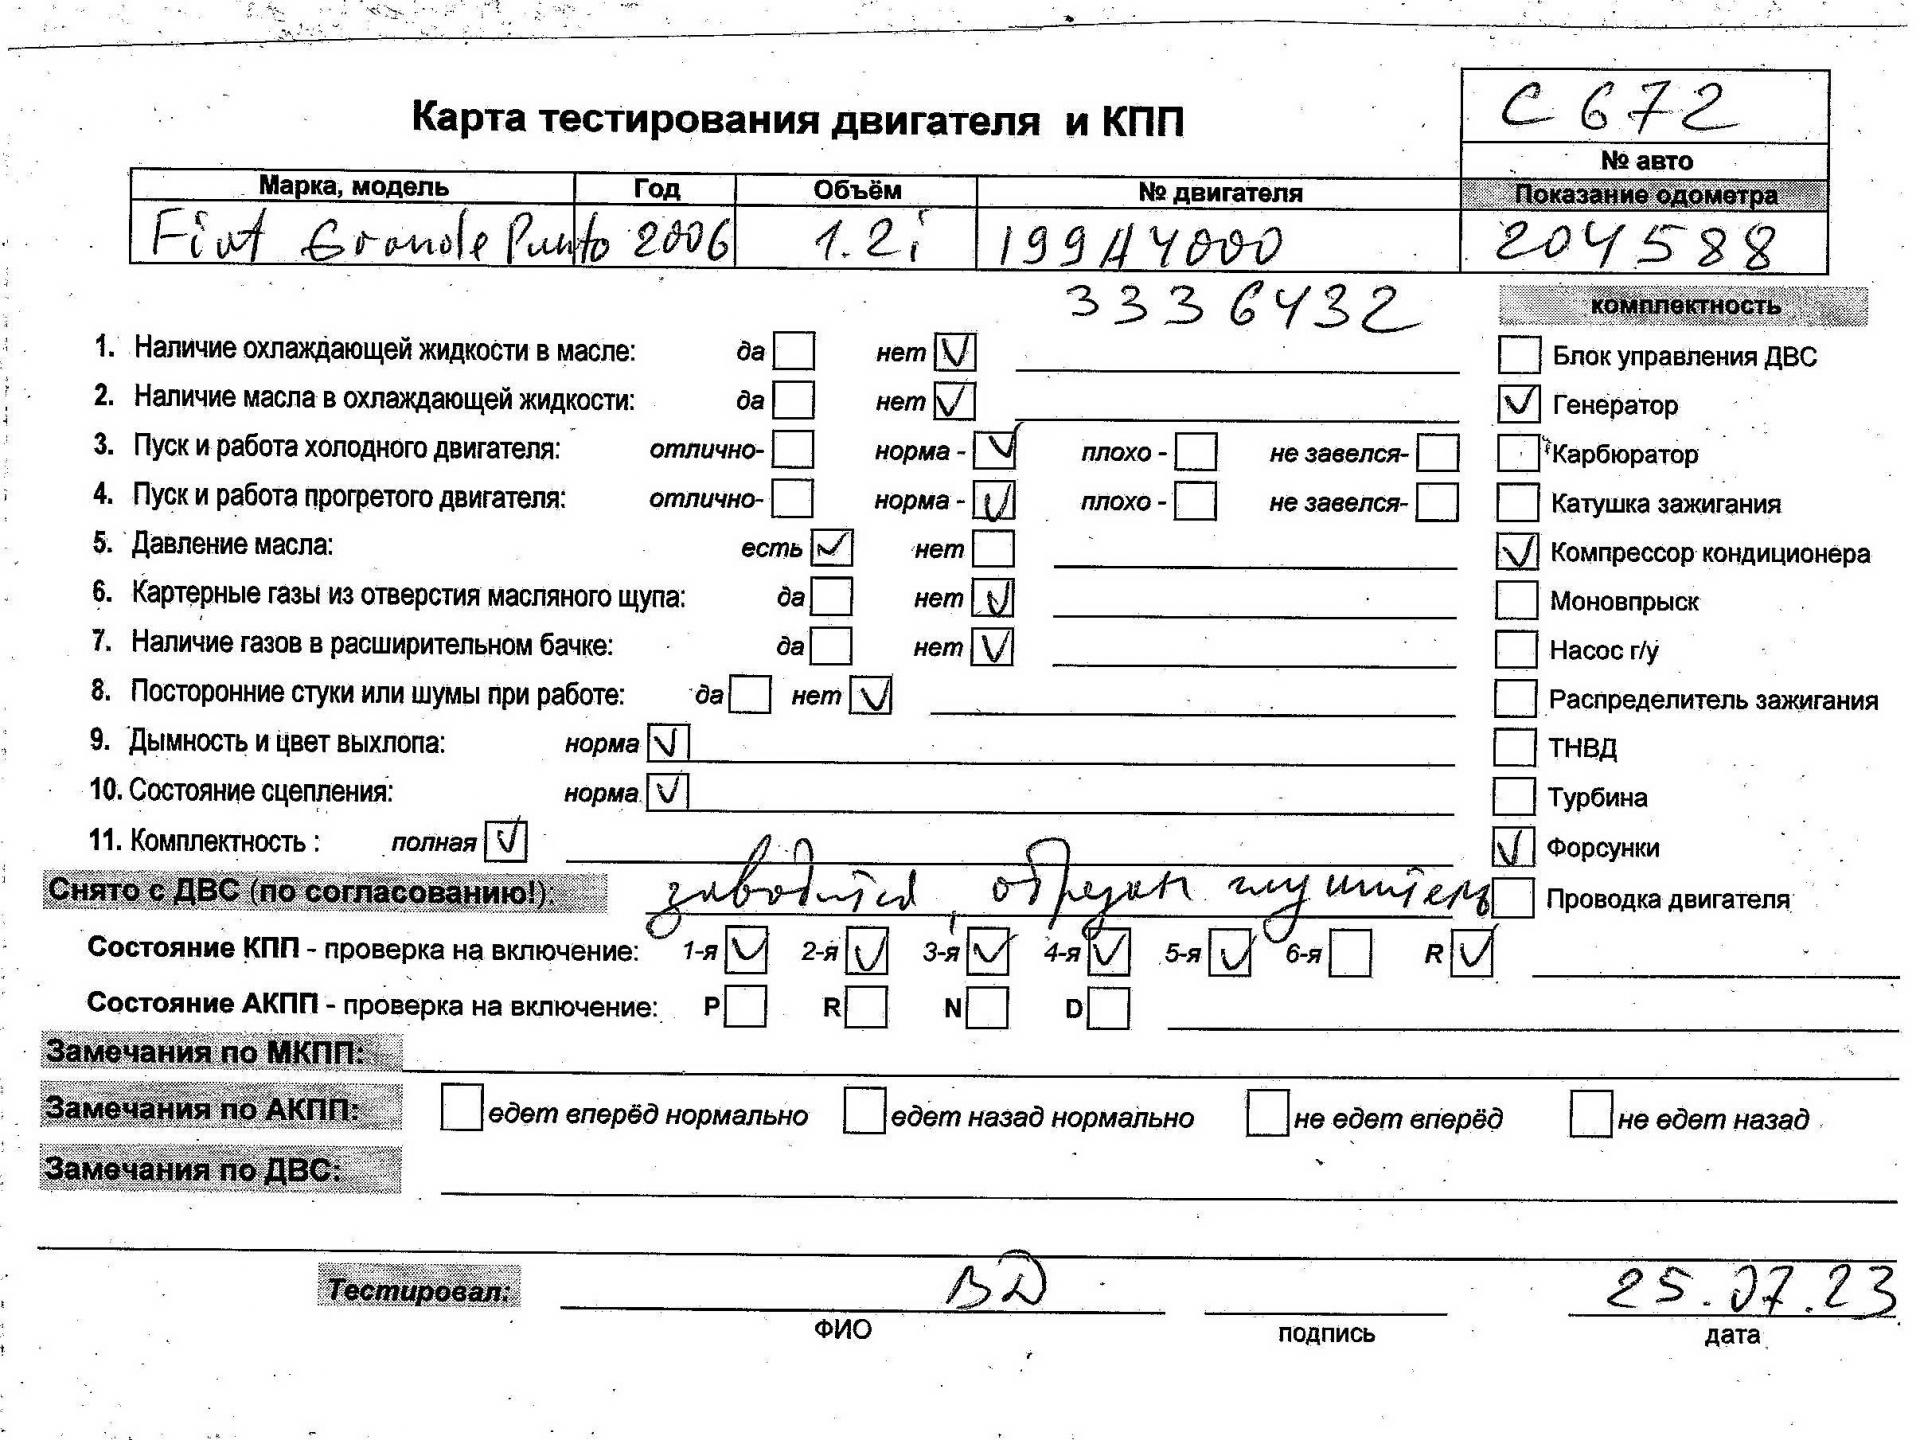 С 672
Карта тестирования двигателя и КПП
№ авто
Марка, модель Год Объём № двигателя Показание одометра
Fiat Grande Punto 2006 1.2i 199A4000 204588
3336432
комплектность
1. Наличие охлаждающей жидкости в масле: да нет Блок управления ДВС
2. Наличие масла в охлаждающей жидкости: да нет Генератор
3. Пуск и работа холодного двигателя: отлично- норма - плохо - не завелся- Карбюратор
4. Пуск и работа прогретого двигателя: отлично- норма - плохо - не завелся- Катушка зажигания
5. Давление масла: есть нет Компрессор кондиционера
6. Картерные газы из отверстия масляного щупа: да нет Моновпрыск
7. Наличие газов в расширительном бачке: да нет Насос г/у
8. Посторонние стуки или шумы при работе: да нет Распределитель зажигания
9. Дымность и цвет выхлопа: норма ТНВД
10. Состояние сцепления: норма Турбина
11. Комплектность : полная Форсунки
Снято с ДВС (по согласованию!): заводится, обрезан глушитель Проводка двигателя
Состояние КПП - проверка на включение: 1-я 2-я 3-я 4-я 5-я 6-я R
Состояние АКПП - проверка на включение: P R N D
Замечания по МКПП:
Замечания по АКПП: едет вперёд нормально едет назад нормально не едет вперёд не едет назад
Замечания по ДВС:
Тестировал: ВД 25.07.23
ФИО подпись дата